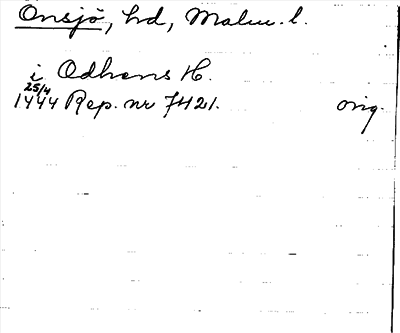 Onsjö, hd, Malm. l.
i Odhens H.
25/4
1444 Rep. nr 7421. orig.